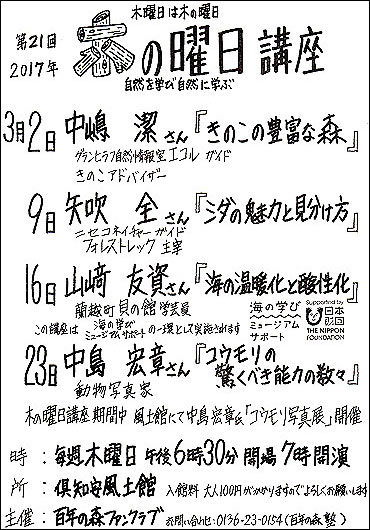 木曜日は木の曜日
第21回
2017年
木の曜日講座
自然を学び自然に学ぶ
3月2日 中嶋 潔さん『きのこの豊富な森』
グランヒラフ自然情報室エコル ガイド
きのこアドバイザー
9日 矢吹 全さん『シダの魅力と見分け方』
ニセコネイチャーガイド
フォレストレック 主宰
16日 山﨑 友資さん『海の温暖化と酸性化』
蘭越町貝の館 学芸員
この講座は 海の学びミュージアムサポート の一環として実施されます
海の学び
ミュージアム
サポート
Supported by
日本財団
THE NIPPON
FOUNDATION
23日 中島 宏章さん『コウモリの
驚くべき能力の数々』
動物写真家
木の曜日講座期間中 風土館にて中島宏章氏「コウモリ写真展」開催
時:毎週木曜日 午後6時30分開場 7時開演
所:倶知安風土館 入館料 大人100円がかかりますのでよろしくお願いします
主催:百年の森ファンクラブ お問い合わせ:0136-23-0154(百年の森塾)